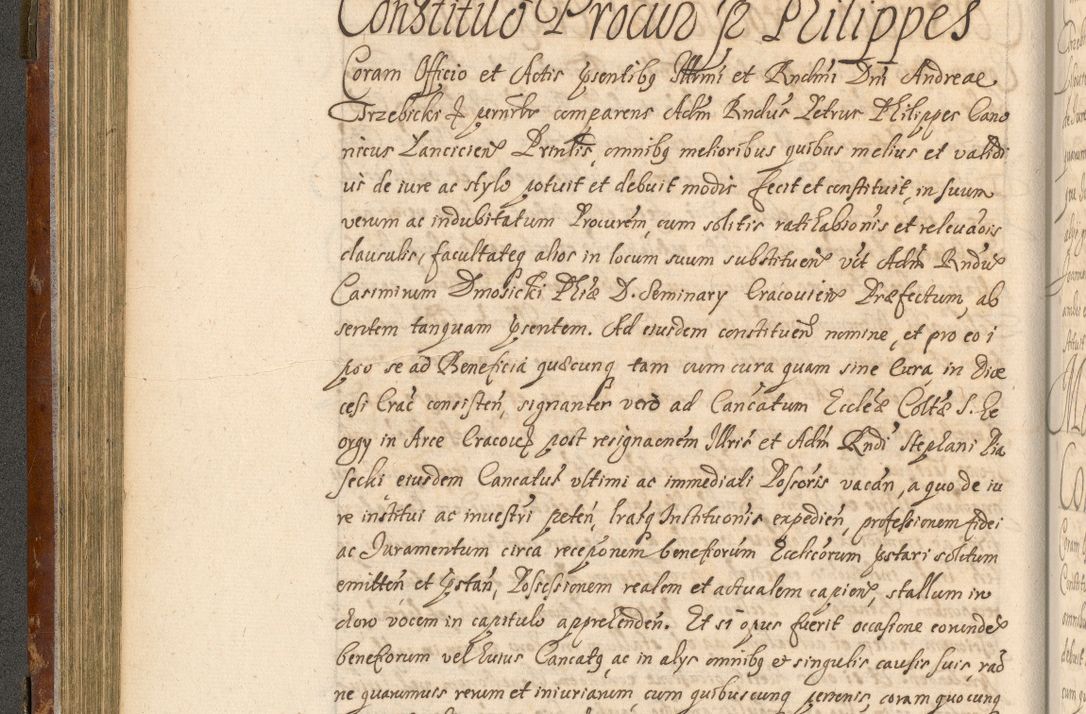 Constitutio Procur p Philippes
Coram Officio et Actis pntibq Illrmi et Rndmi Dni Andreae
Trzebicki & comparens Adm Rndus Petrus Philippes Cano
nicus Lancicien Prntis, omnibq melioribus quibus melius et validi
us de iure ac stylo potuit et debuit modis fecit et constituit, in suum
verum ac indubitatum Procurem, cum solitis ratihabionis et relevaois
clausulis, facultateq alios in locum suum substituen vtt Adm Rndu
Casimirum Dmosicki Phiæ D. Seminary Cracovien Præfectum, ab
sentem tanquam psentem. Ad eiusdem constituen nomine, et pro eo i
pso se ad Beneficia quæcunq tam cum cura quam sine cura, in Diæ
cesi Crac consisten, signanter vero ad Cancatum Eccleæ Coltæ S. Ge
orgy in Arce Cracov post resignaonem Illris et Adm Rndi Stephani Pia
secki eiusdem Cancatus vltimi ac immediati Possoris vacan, a quo de iu
re institui ac investri peten, lrasq Instituonis expedien, professionem fidei
ac Iuramentum circa receponem beneficiorum Ecclicorum pstari solitum
emitten et pstan, Possessionem realem et actualem capien, stallum in
choro vocem in capitulo apprehenden. Et si opus fuerit occasione eorunde
beneficiorum vel huius Cancatq, ac in alys omnibq et singulis causis suis, rao
ne quarumvis rerum et iniuriarum, cum quibuscunq personis, coram quocunq